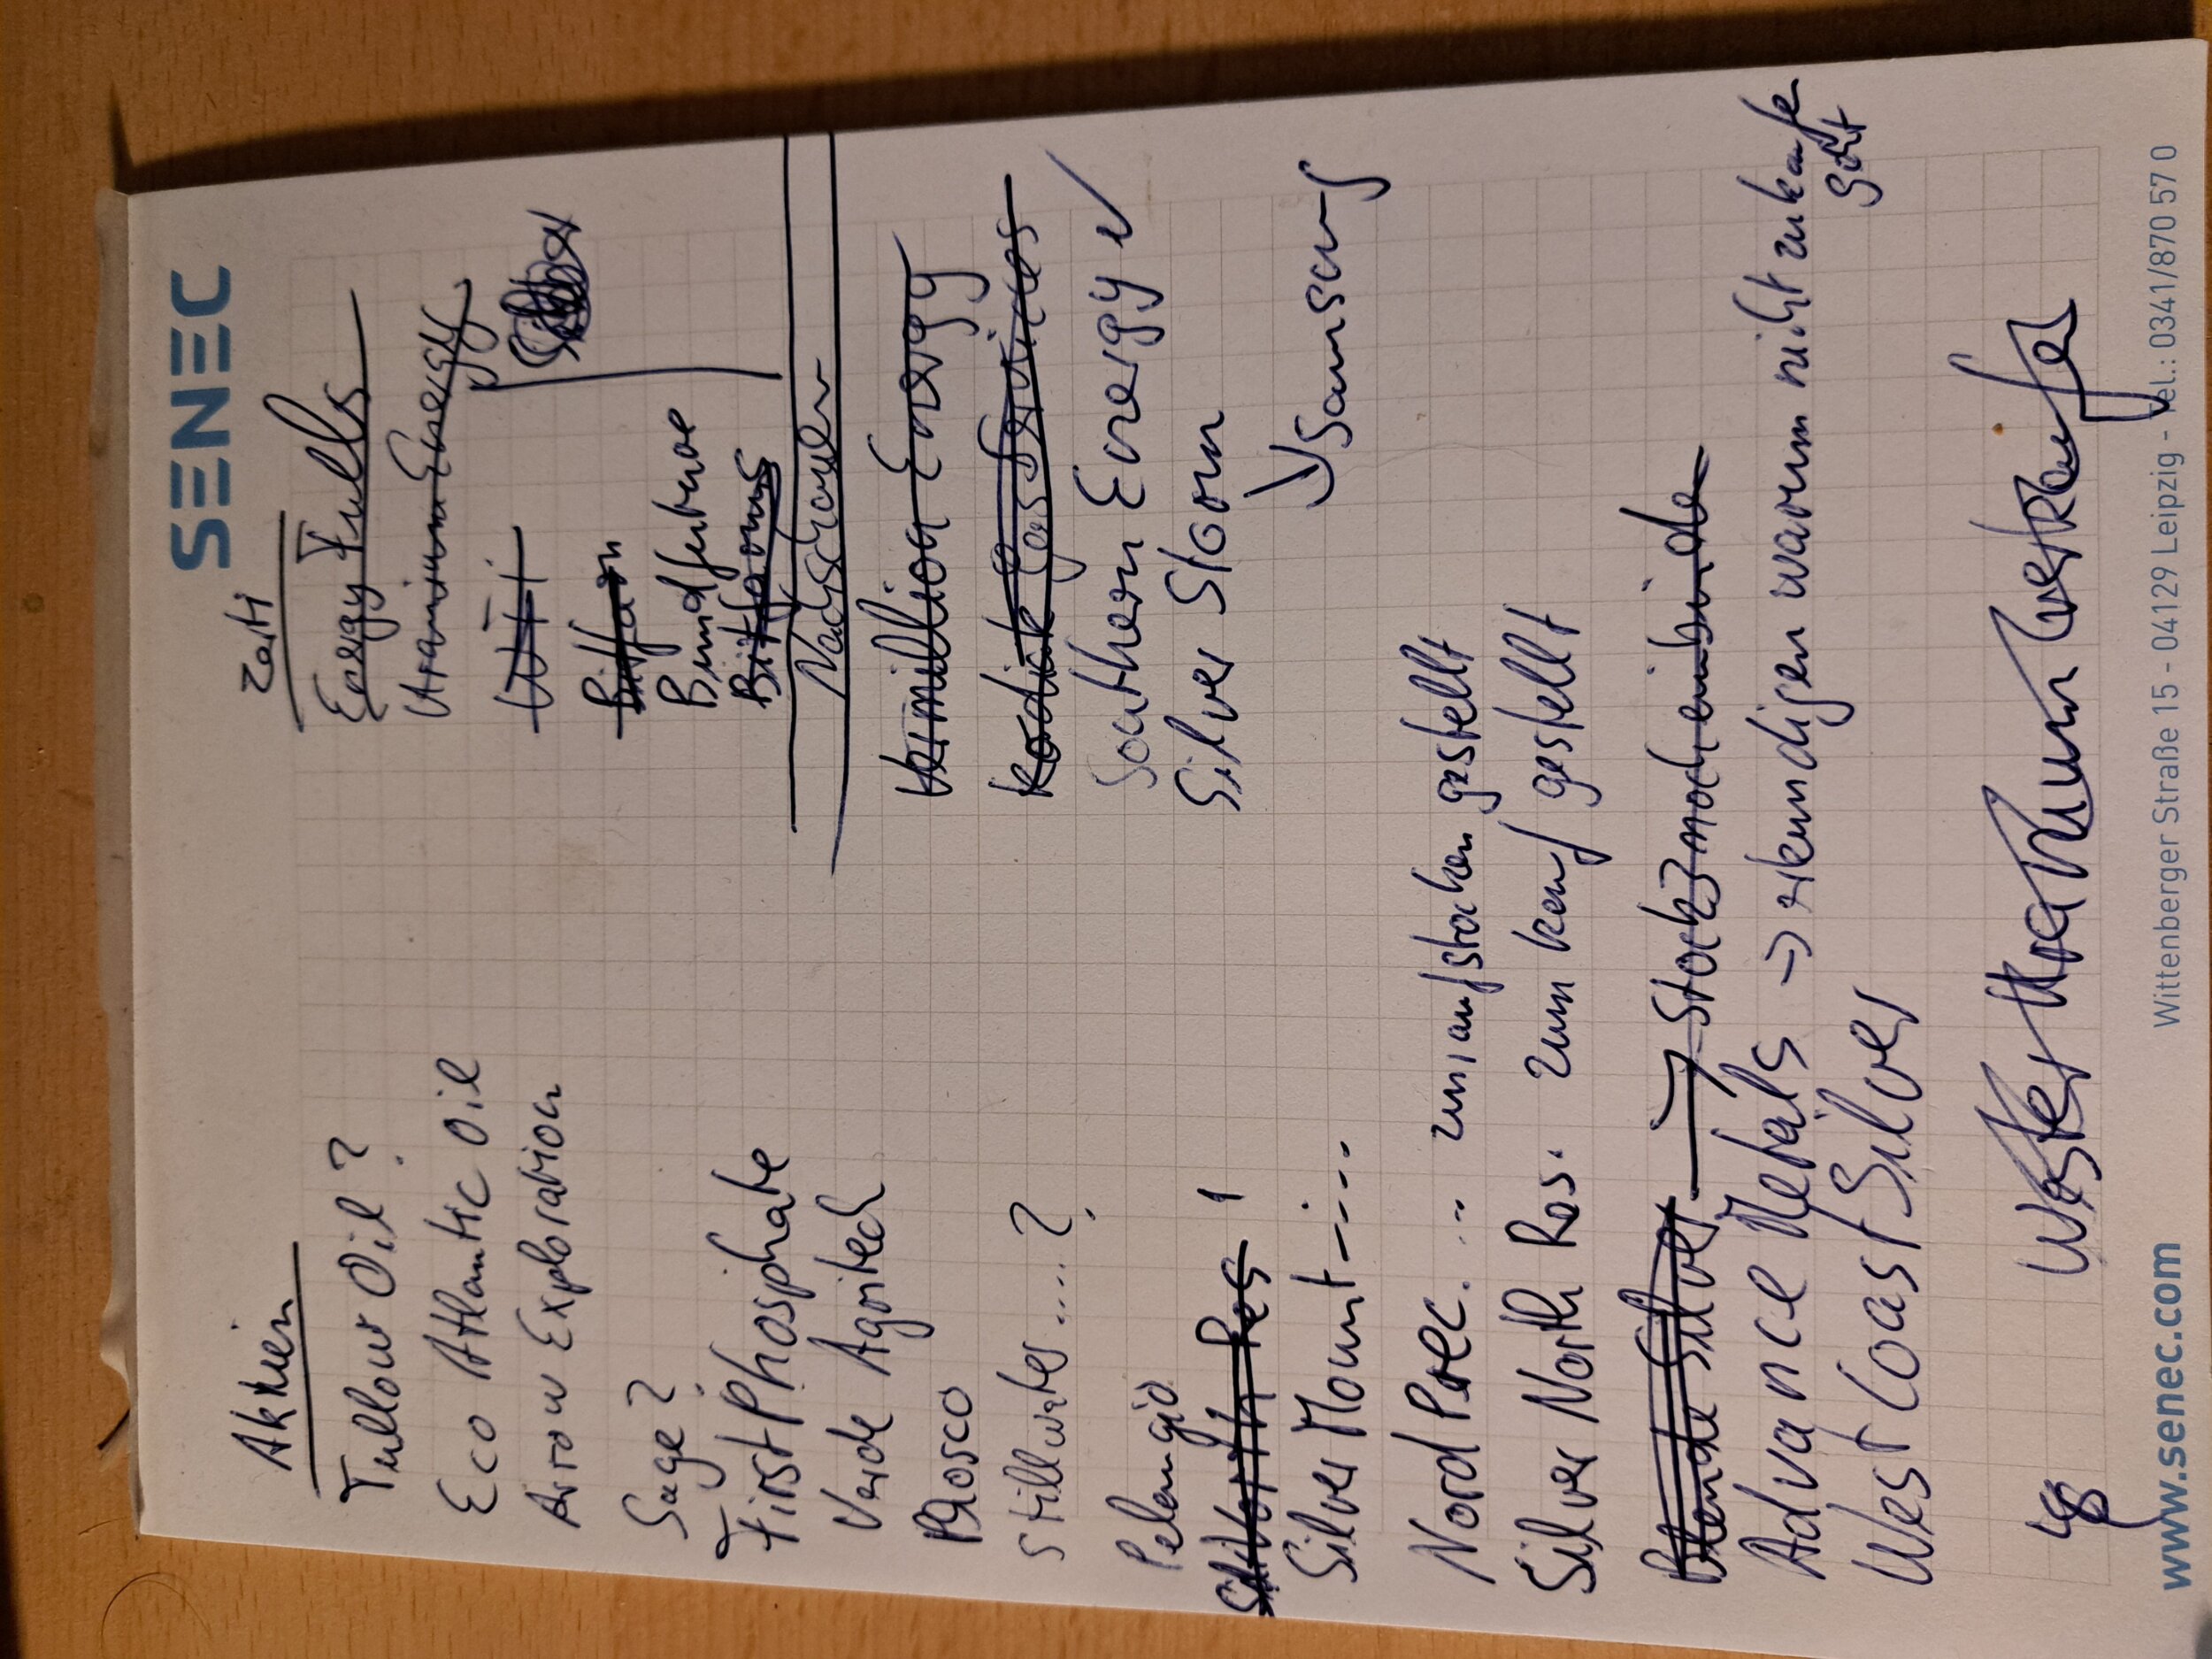 SENEC
Aktien
Tullow Oil?
Eco Atlantic Oil
Arrow Exploration
Sage?
First Phosphate
Verde Agritech
Stillwater....?
Pelangio
Silver Mount-....
Nord Prec. .. zum aufstocken gestellt
Silver North Res. zum kauf gestellt
Silver → Stock3 noch einbinde
Advance Metals → erkundigen warum nicht zukaufe
geht
West Coast Silver
Zerti
Energy Fulls
Uranium Energy
Bitfarm
Bitfarms
Nachschauen
Vermillion Energy
Kodiak Gas Services
Southern Energy
Silver Storm
Samsung
www.senec.com
Wittenberger Straße 15 - 04129 Leipzig - Tel.: 0341/870 57 0